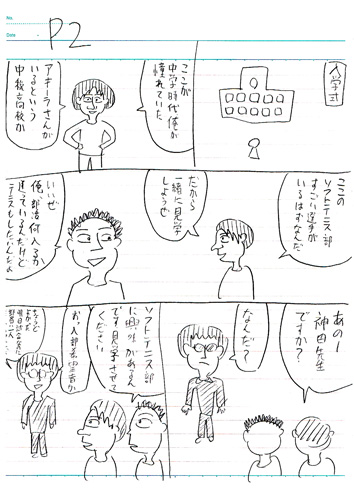 No.
Date
P2
入学式
ここが
中学時代俺が
憧れていた
アキーラさんが
いるという
中牧高校か
ここの
ソフトテニス部
すごい選手が
いるはずなんだ
だから
一緒に見学
しようぜ
いいぜ
俺、部活何入るか
迷っていたんだけど
テニスもしたいんだよ
あのー
神田先生
ですか?
なんだ?
ソフトテニス部
に興味があるん
です見学させて
ください
お、入部希望者か
ちょうど
よかった